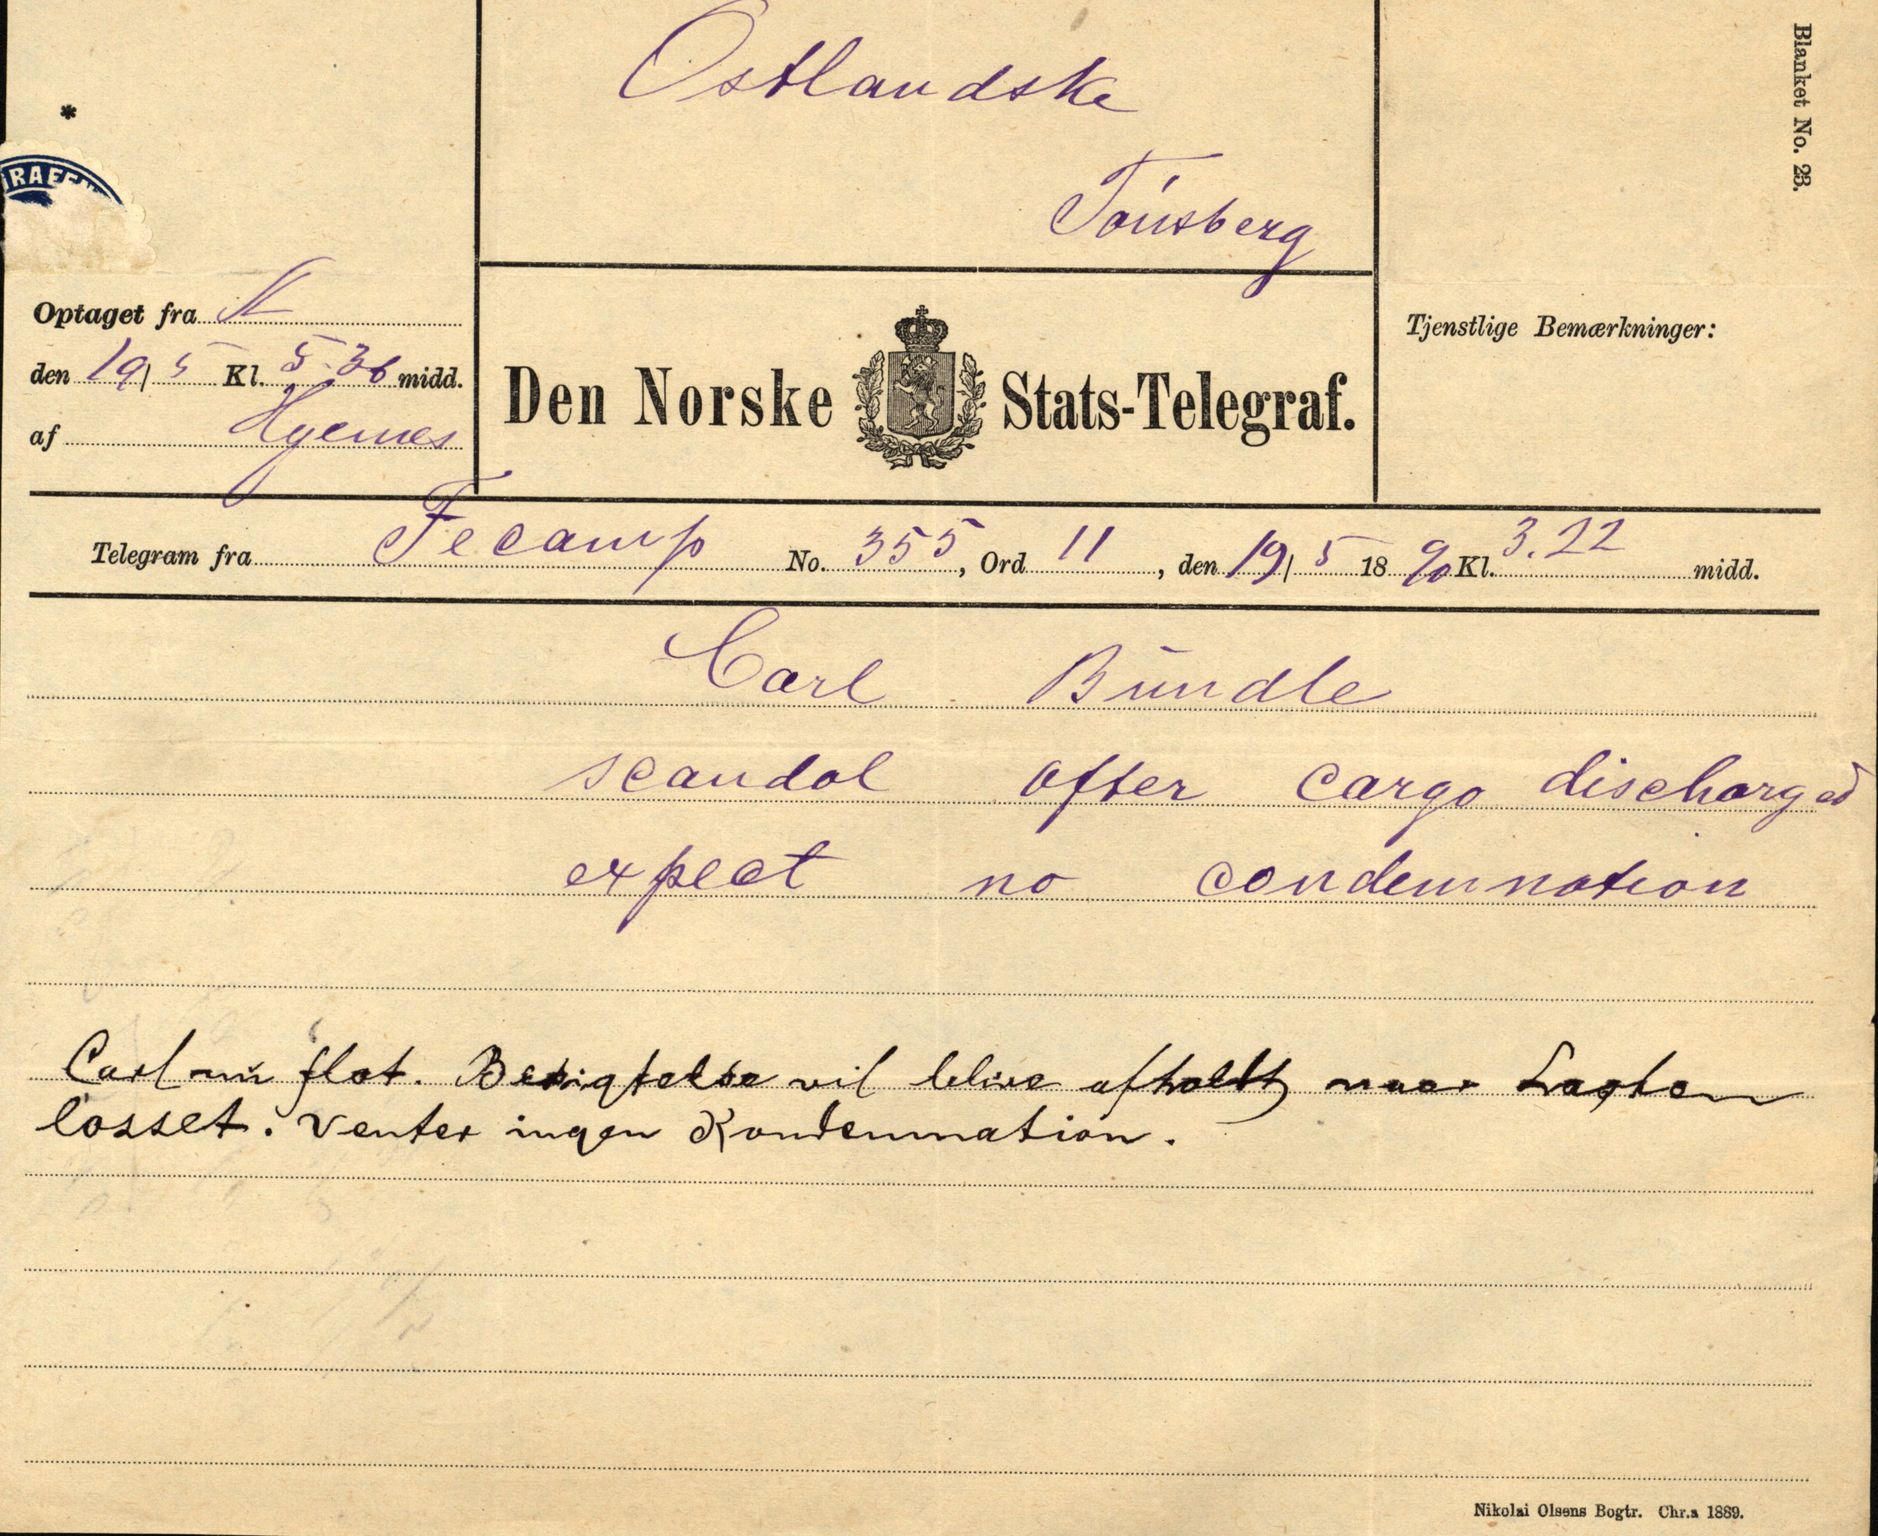 Blanket No. 23.
Ostlandske
Tönsberg
*
RAFEN
Optaget fra
den 19/5 Kl. 5.36 midd.
af
Den Norske Stats-Telegraf.
Tjenstlige Bemærkninger:
Telegram fra Fecamp No. 355, Ord 11, den 19/5 1890 Kl. 3.22 midd.
Carl Bundle
scandal after cargo discharged
expect no condemnation
Carl nu flot. Besigtelse vil blive afholdt naar Lasten
losset. Venter ingen Kondemnation.
Nikolai Olsens Bogtr. Chr.a 1889.